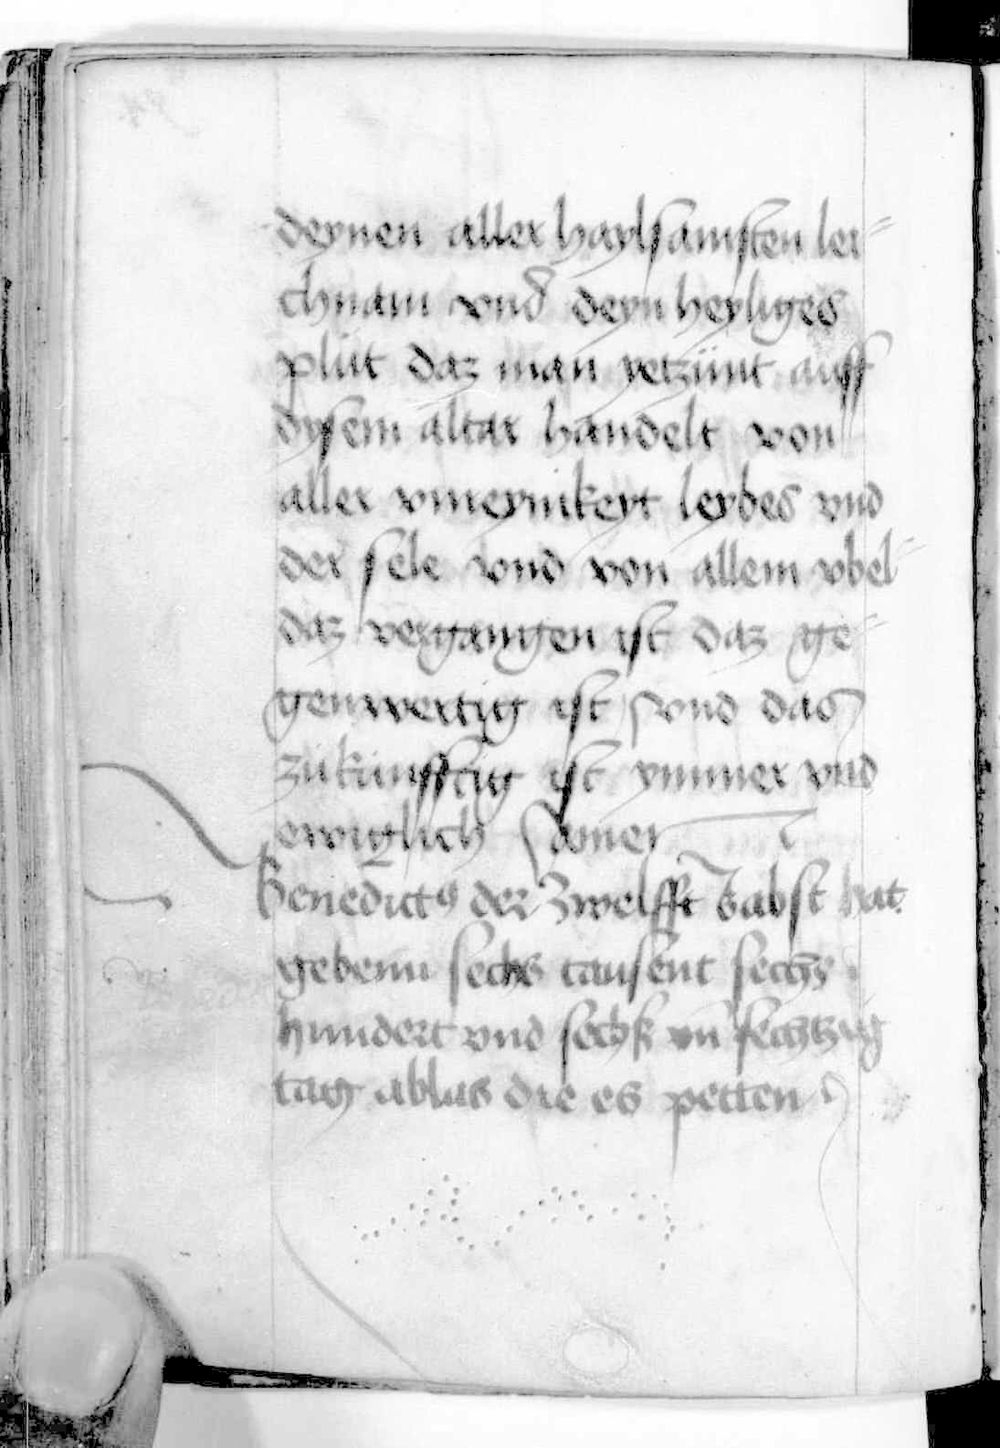 deynen aller haylsamsten ley=
chnam vnd deyn heyliges
plut daz man yetzunt auff
dysem altar handelt von
aller vnreynikeyt leybes vnd
der sele vnd von allem vbel=
daz vergangen ist daz ge=
genwertig ist vnd das
zukunfftig ist ymmer vnd
ewiglich Amen
Benedictus der Zwelfft babst hat
gebenn sechs tausent sechs
hundert vnd sechß vn̄ sechtzig
tag ablas die es petten